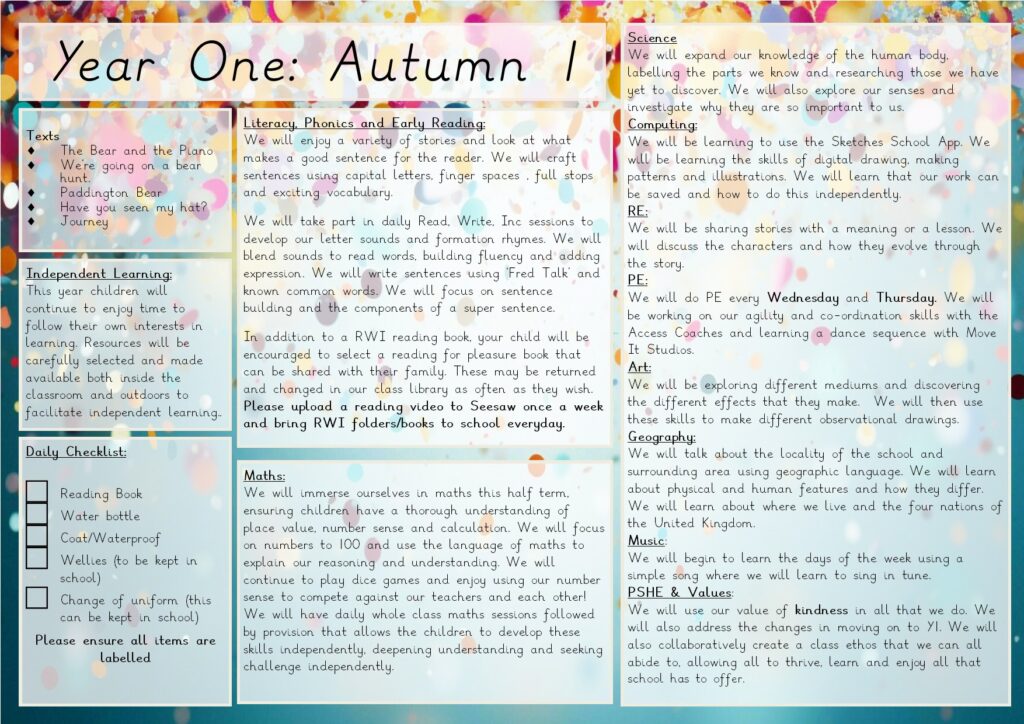 Year One: Autumn 1
Texts
♦ The Bear and the Piano
♦ We're going on a bear
hunt.
♦ Paddington Bear
♦ Have you seen my hat?
♦ Journey
Independent Learning:
This year children will
continue to enjoy time to
follow their own interests in
learning. Resources will be
carefully selected and made
available both inside the
classroom and outdoors to
facilitate independent learning..
Daily Checklist:
Reading Book
Water bottle
Coat/Waterproof
Wellies (to be kept in
school)
Change of uniform (this
can be kept in school)
Please ensure all items are
labelled
Literacy, Phonics and Early Reading:
We will enjoy a variety of stories and look at what
makes a good sentence for the reader. We will craft
sentences using capital letters, finger spaces , full stops
and exciting vocabulary.
We will take part in daily Read, Write, Inc sessions to
develop our letter sounds and formation rhymes. We will
blend sounds to read words, building fluency and adding
expression. We will write sentences using 'Fred Talk' and
known common words. We will focus on sentence
building and the components of a super sentence.
In addition to a RWI reading book, your child will be
encouraged to select a reading for pleasure book that
can be shared with their family. These may be returned
and changed in our class library as often as they wish.
Please upload a reading video to Seesaw once a week
and bring RWI folders/books to school everyday.
Maths:
We will immerse ourselves in maths this half term,
ensuring children have a thorough understanding of
place value, number sense and calculation. We will focus
on numbers to 100 and use the language of maths to
explain our reasoning and understanding. We will
continue to play dice games and enjoy using our number
sense to compete against our teachers and each other!
We will have daily whole class maths sessions followed
by provision that allows the children to develop these
skills independently, deepening understanding and seeking
challenge independently.
Science
We will expand our knowledge of the human body,
labelling the parts we know and researching those we have
yet to discover. We will also explore our senses and
investigate why they are so important to us.
Computing:
We will be learning to use the Sketches School App. We
will be learning the skills of digital drawing, making
patterns and illustrations. We will learn that our work can
be saved and how to do this independently.
RE:
We will be sharing stories with a meaning or a lesson. We
will discuss the characters and how they evolve through
the story.
PE:
We will do PE every Wednesday and Thursday. We will
be working on our agility and co-ordination skills with the
Access Coaches and learning a dance sequence with Move
It Studios.
Art:
We will be exploring different mediums and discovering
the different effects that they make. We will then use
these skills to make different observational drawings.
Geography:
We will talk about the locality of the school and
surrounding area using geographic language. We will learn
about physical and human features and how they differ.
We will learn about where we live and the four nations of
the United Kingdom.
Music:
We will begin to learn the days of the week using a
simple song where we will learn to sing in tune.
PSHE & Values:
We will use our value of kindness in all that we do. We
will also address the changes in moving on to Y1. We will
also collaboratively create a class ethos that we can all
abide to, allowing all to thrive, learn and enjoy all that
school has to offer.